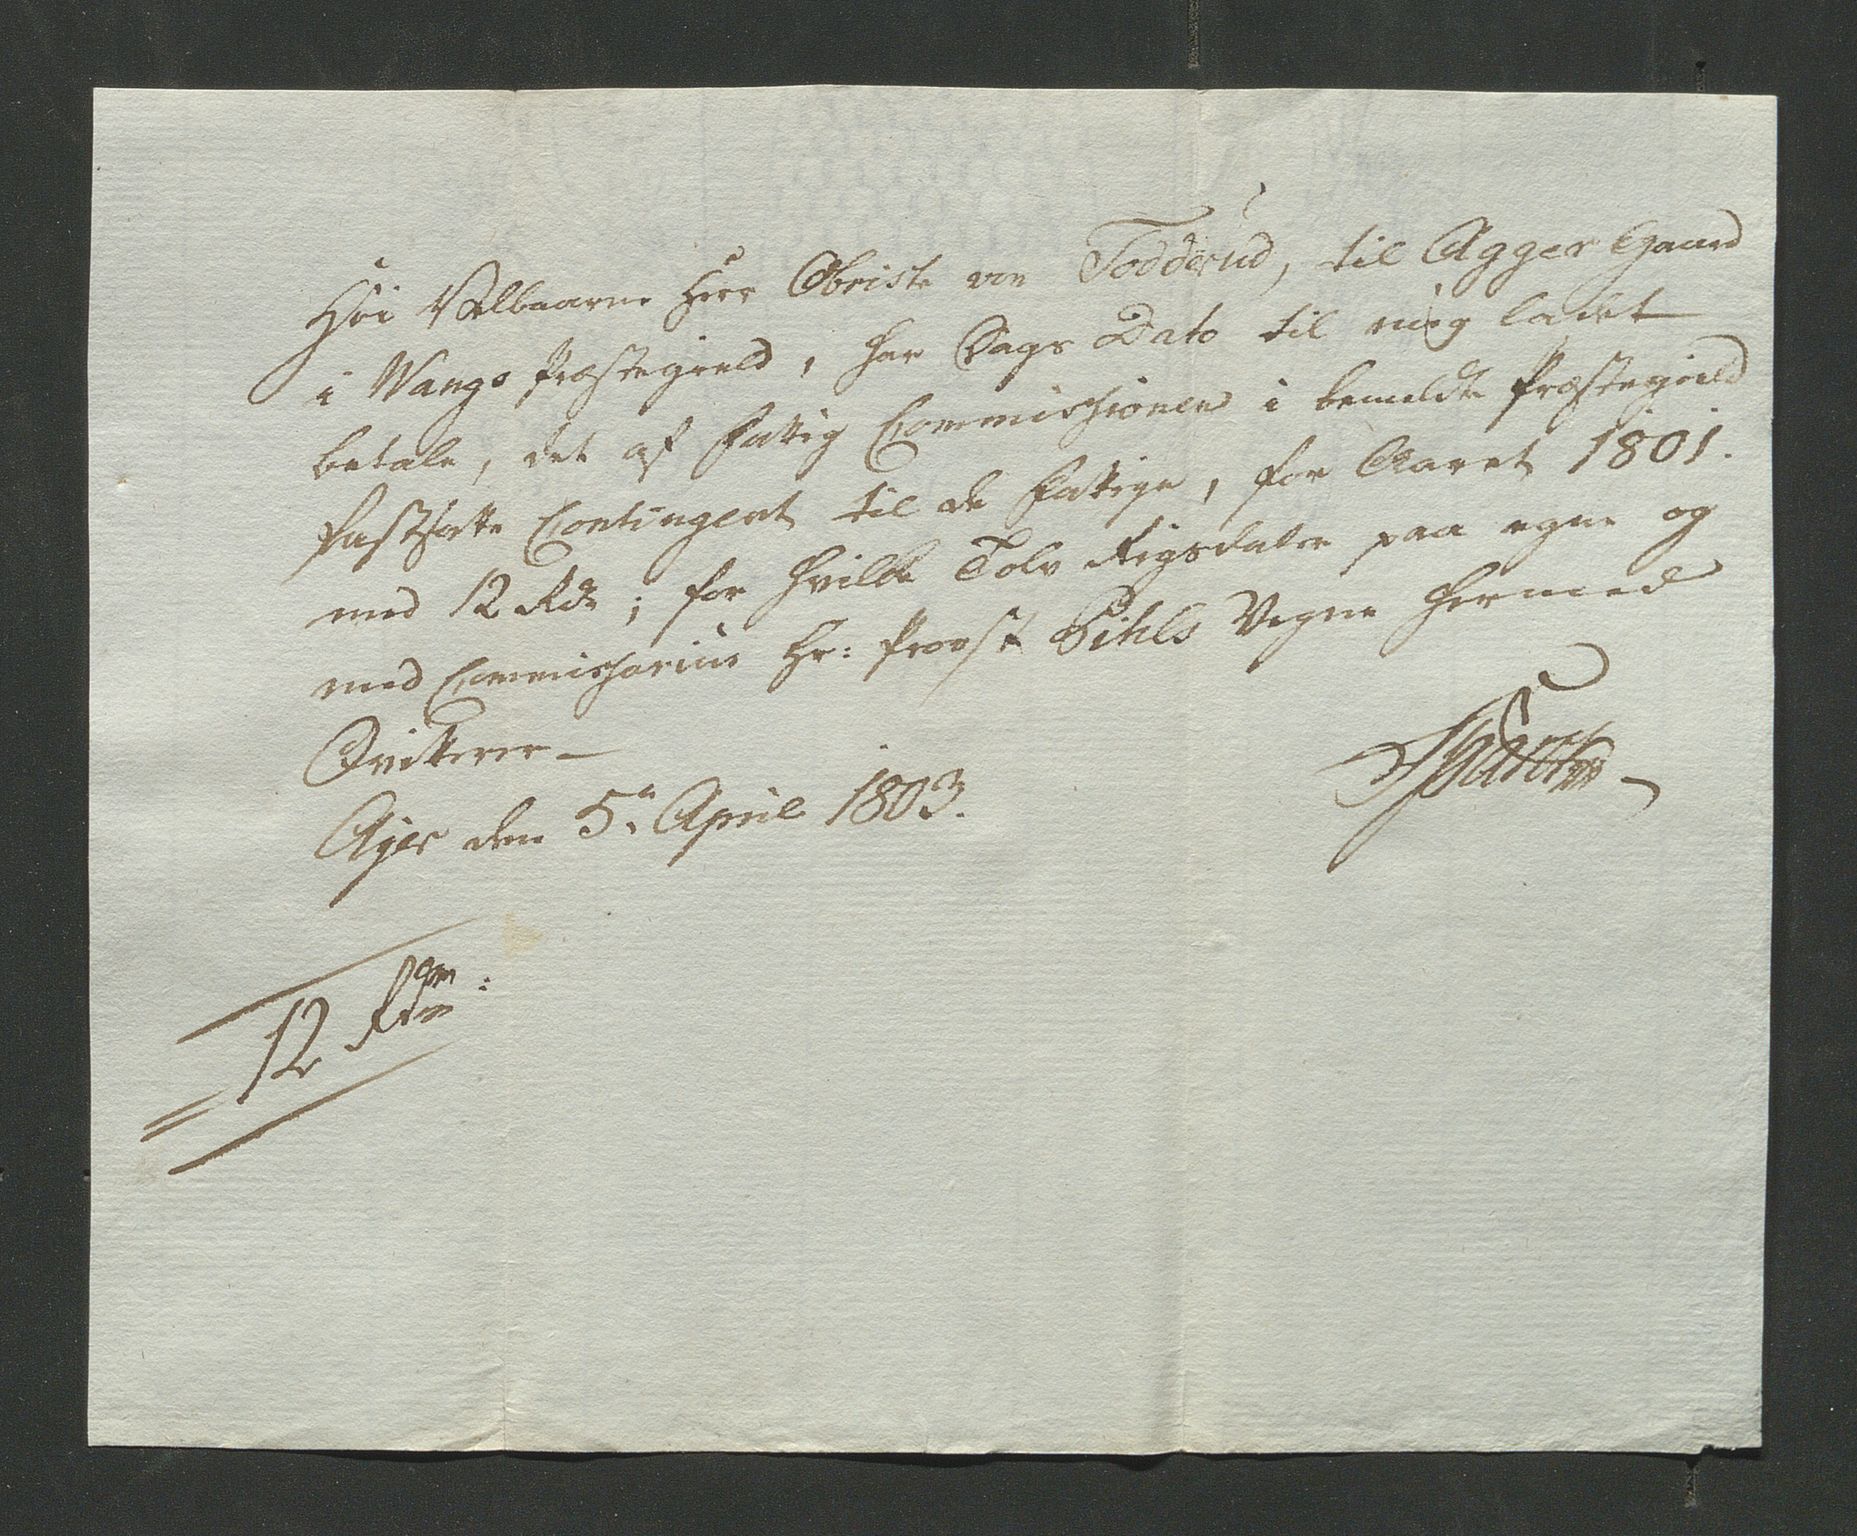 Höi Velbaarne Herr Obriste von Todderud, til Agger Gaard
i Wangs Præstegield, har Dags Dato til mig ladet
betale, det af Fattig Commissionen i bemeldte Præstegield
fastsatte Contingent til de Fattige, for Aaret 1801.
med 12 Rdr; for hvilke Tolv Rigsdaler paa egne og
med Commissarius Hr: Provst Pihls Vegne hermed
Qvitterer—
Ajer den 5n April 1803.
12 Rdr: